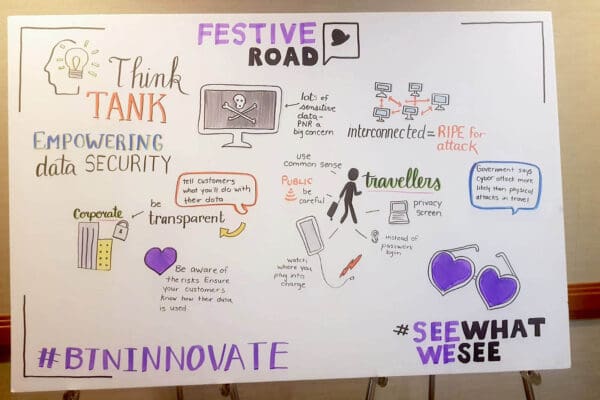 FESTIVE
ROAD
Think
TANK
EMPOWERING
data SECURITY
lots of
sensitive
data-
PNR a
big concern
interconnected = RIPE for
attack
tell customers
what you'll do with
their data
Corporate
be
transparent
Be aware of
the risks. Ensure
your customers
know how their data
is used.
use
common sense
PUBLIC
be
careful
travellers
privacy
screen
instead of
password
login
watch
where you
plug into
charge
Government says
cyber attack more
likely than physical
attacks in travel
#BTNINNOVATE
#SEEWHAT
WESEE